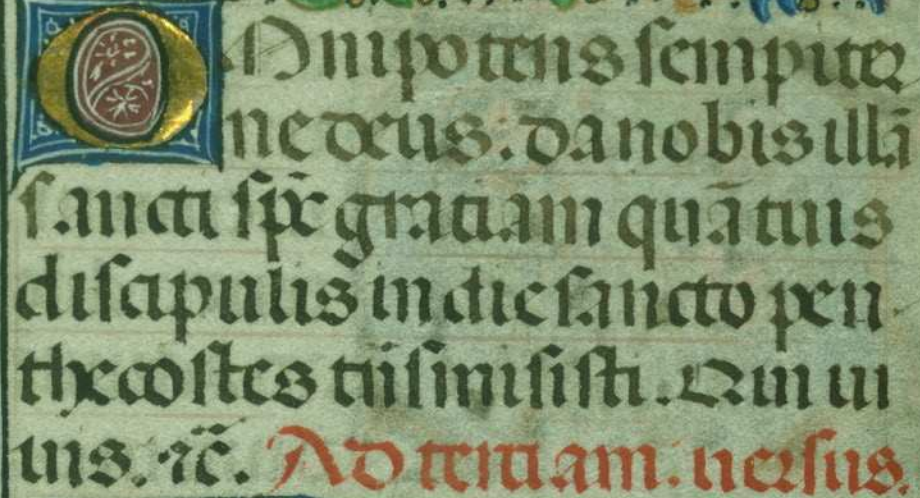 Omnipotens sempiter
ne deus. da nobis illā
sancti sp̄c gratiam quā tuis
discipulis in die sancto pen
thecostes trīsmisisti. Qui vi
uis. ⁊c̄. Ad tertiam. uersus.